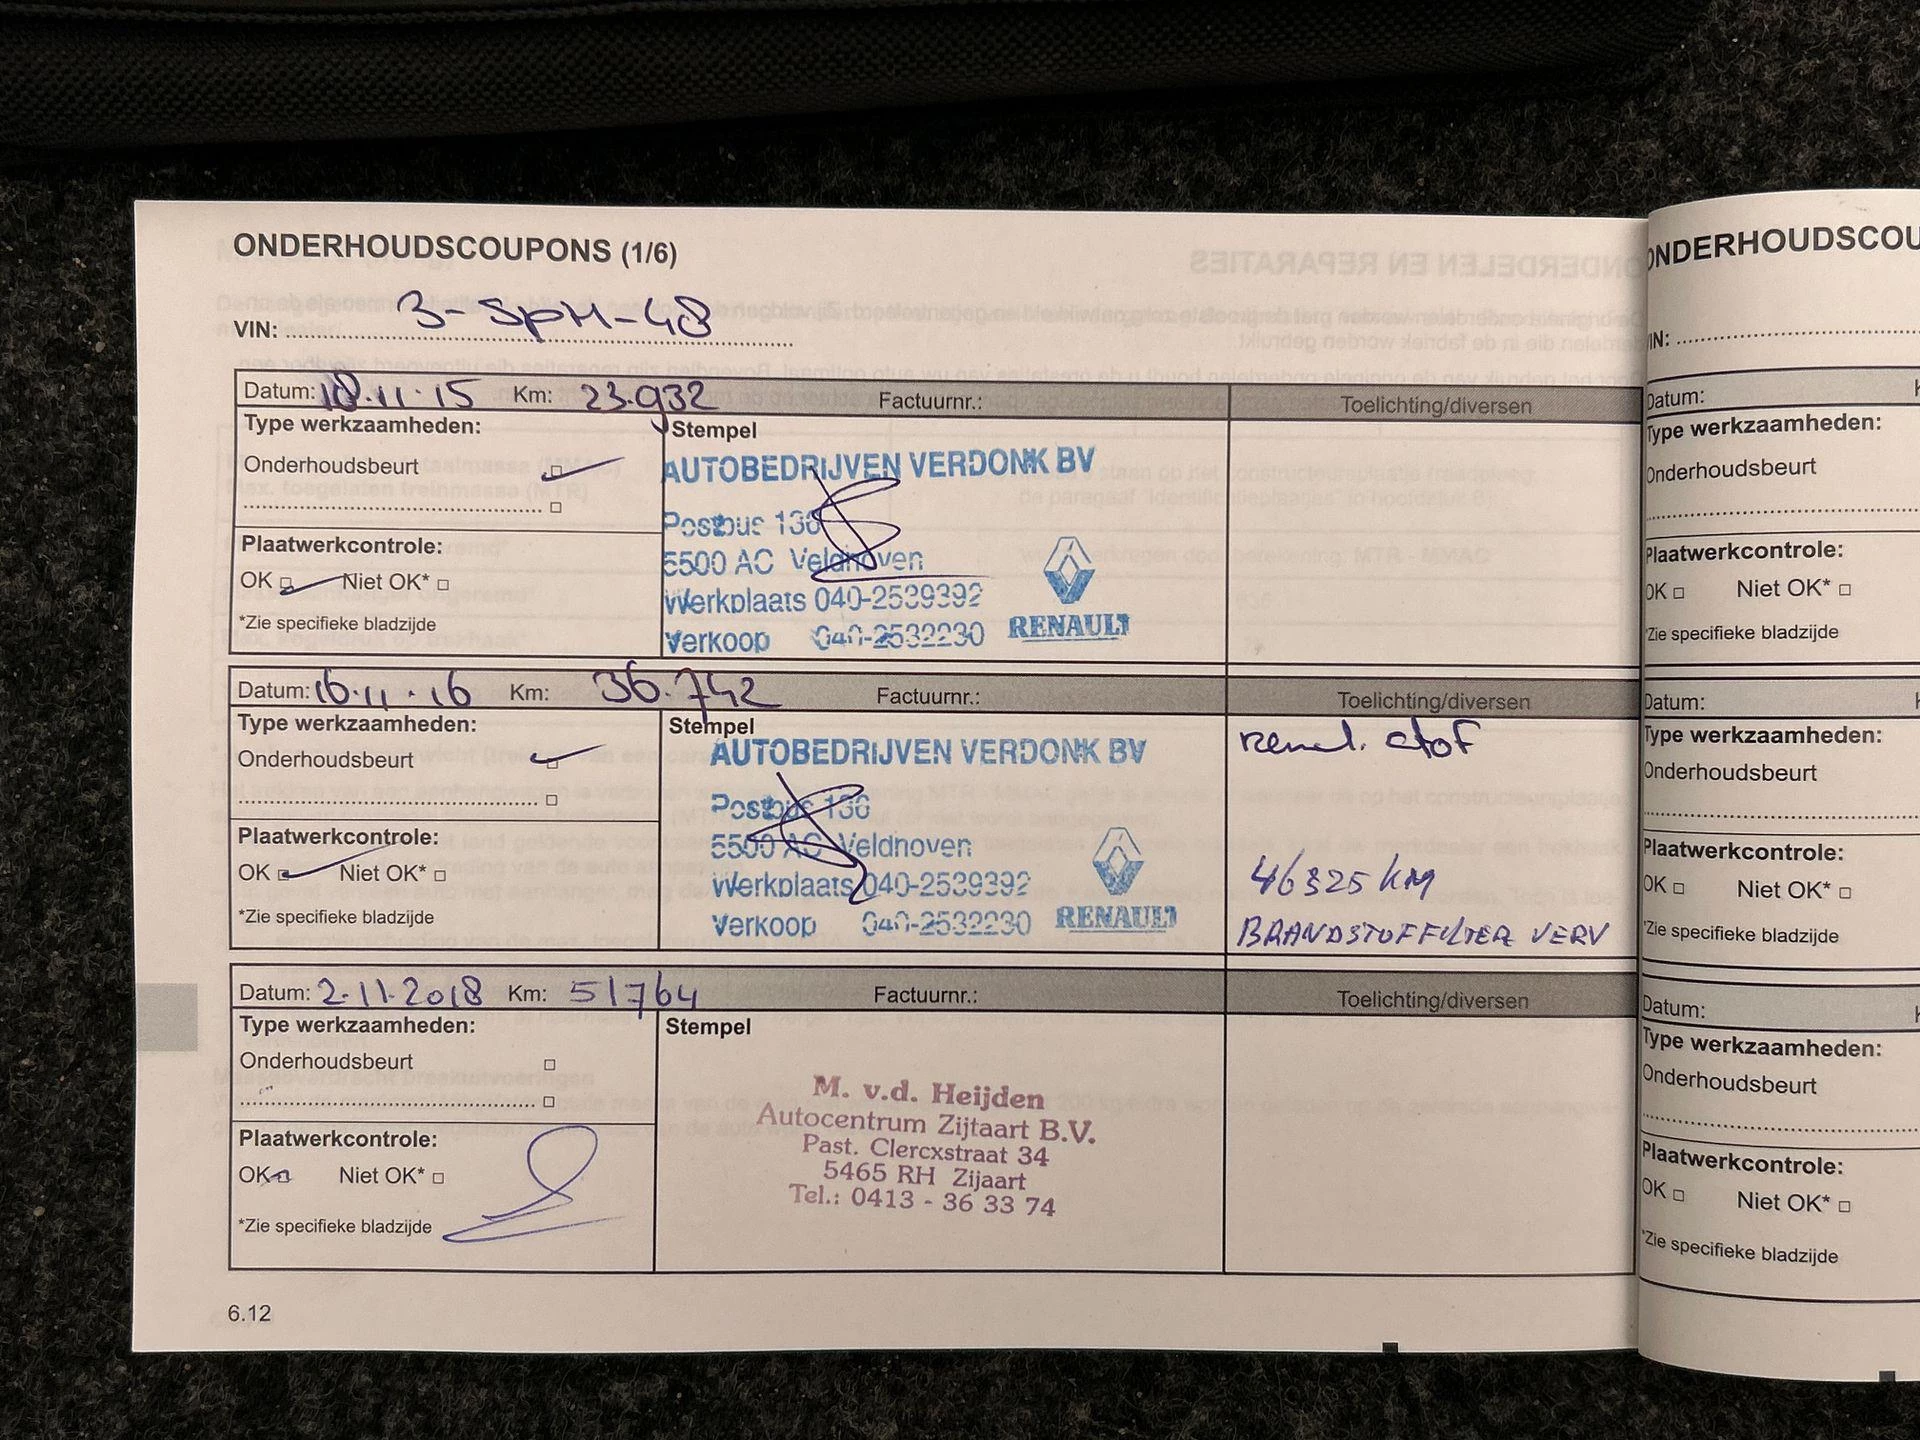 ONDERHOUDSCOUPONS (1/6)
VIN: 3-SPH-48
Datum: 18.11.15 Km: 23.932 Factuurnr.: Toelichting/diversen
Type werkzaamheden:
Stempel
Onderhoudsbeurt
AUTOBEDRIJVEN VERDONK BV
Postbus 136
Plaatwerkcontrole:
5500 AC Veldhoven
OK Niet OK*
Werkplaats 040-2539392
*Zie specifieke bladzijde
Verkoop 040-2532230
RENAULT
Datum: 16.11.16 Km: 36.742 Factuurnr.: Toelichting/diversen
Type werkzaamheden:
Stempel
Onderhoudsbeurt
AUTOBEDRIJVEN VERDONK BV
Postbus 136
Plaatwerkcontrole:
5500 AC Veldhoven
OK Niet OK*
Werkplaats 040-2539392
*Zie specifieke bladzijde
Verkoop 040-2532230
RENAULT
46325 KM
BRANDSTOFFILTER VERV
Datum: 2.11.2018 Km: 51764 Factuurnr.: Toelichting/diversen
Type werkzaamheden:
Stempel
Onderhoudsbeurt
M. v.d. Heijden
Autocentrum Zijtaart B.V.
Past. Clercxstraat 34
5465 RH Zijaart
Tel.: 0413 - 36 33 74
Plaatwerkcontrole:
OK Niet OK*
*Zie specifieke bladzijde
6.12
ONDERHOUDSCOU
VIN:
Datum:
Type werkzaamheden:
Onderhoudsbeurt
Plaatwerkcontrole:
OK Niet OK*
*Zie specifieke bladzijde
Datum:
Type werkzaamheden:
Onderhoudsbeurt
Plaatwerkcontrole:
OK Niet OK*
*Zie specifieke bladzijde
Datum:
Type werkzaamheden:
Onderhoudsbeurt
Plaatwerkcontrole:
OK Niet OK*
*Zie specifieke bladzijde